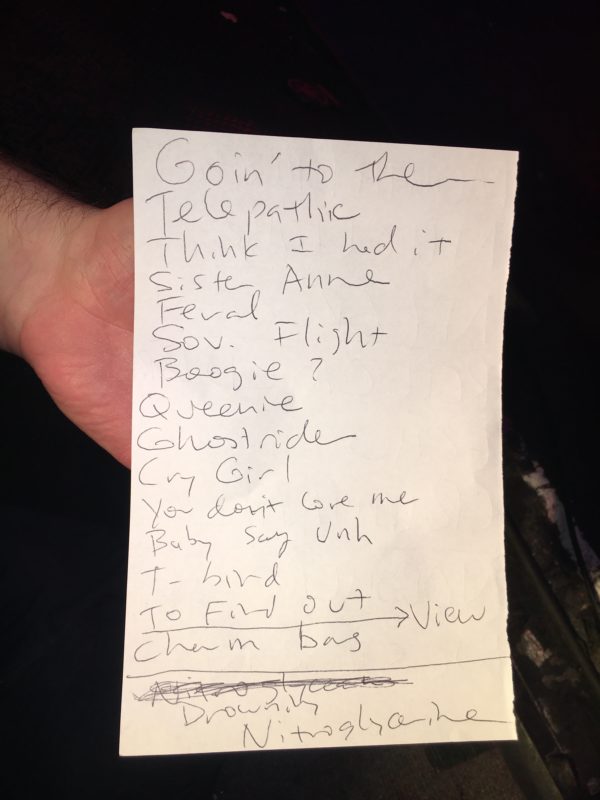 Goin' to the
Telepathic
Think I had it
Sister Anne
Feral
Sov. Flight
Boogie ?
Queenie
Ghostrider
Cry Girl
You don't love me
Baby Say Unh
T-bird
To Find out → View
Charm bag
Nitroglycerine
Drowning
Nitroglycerine